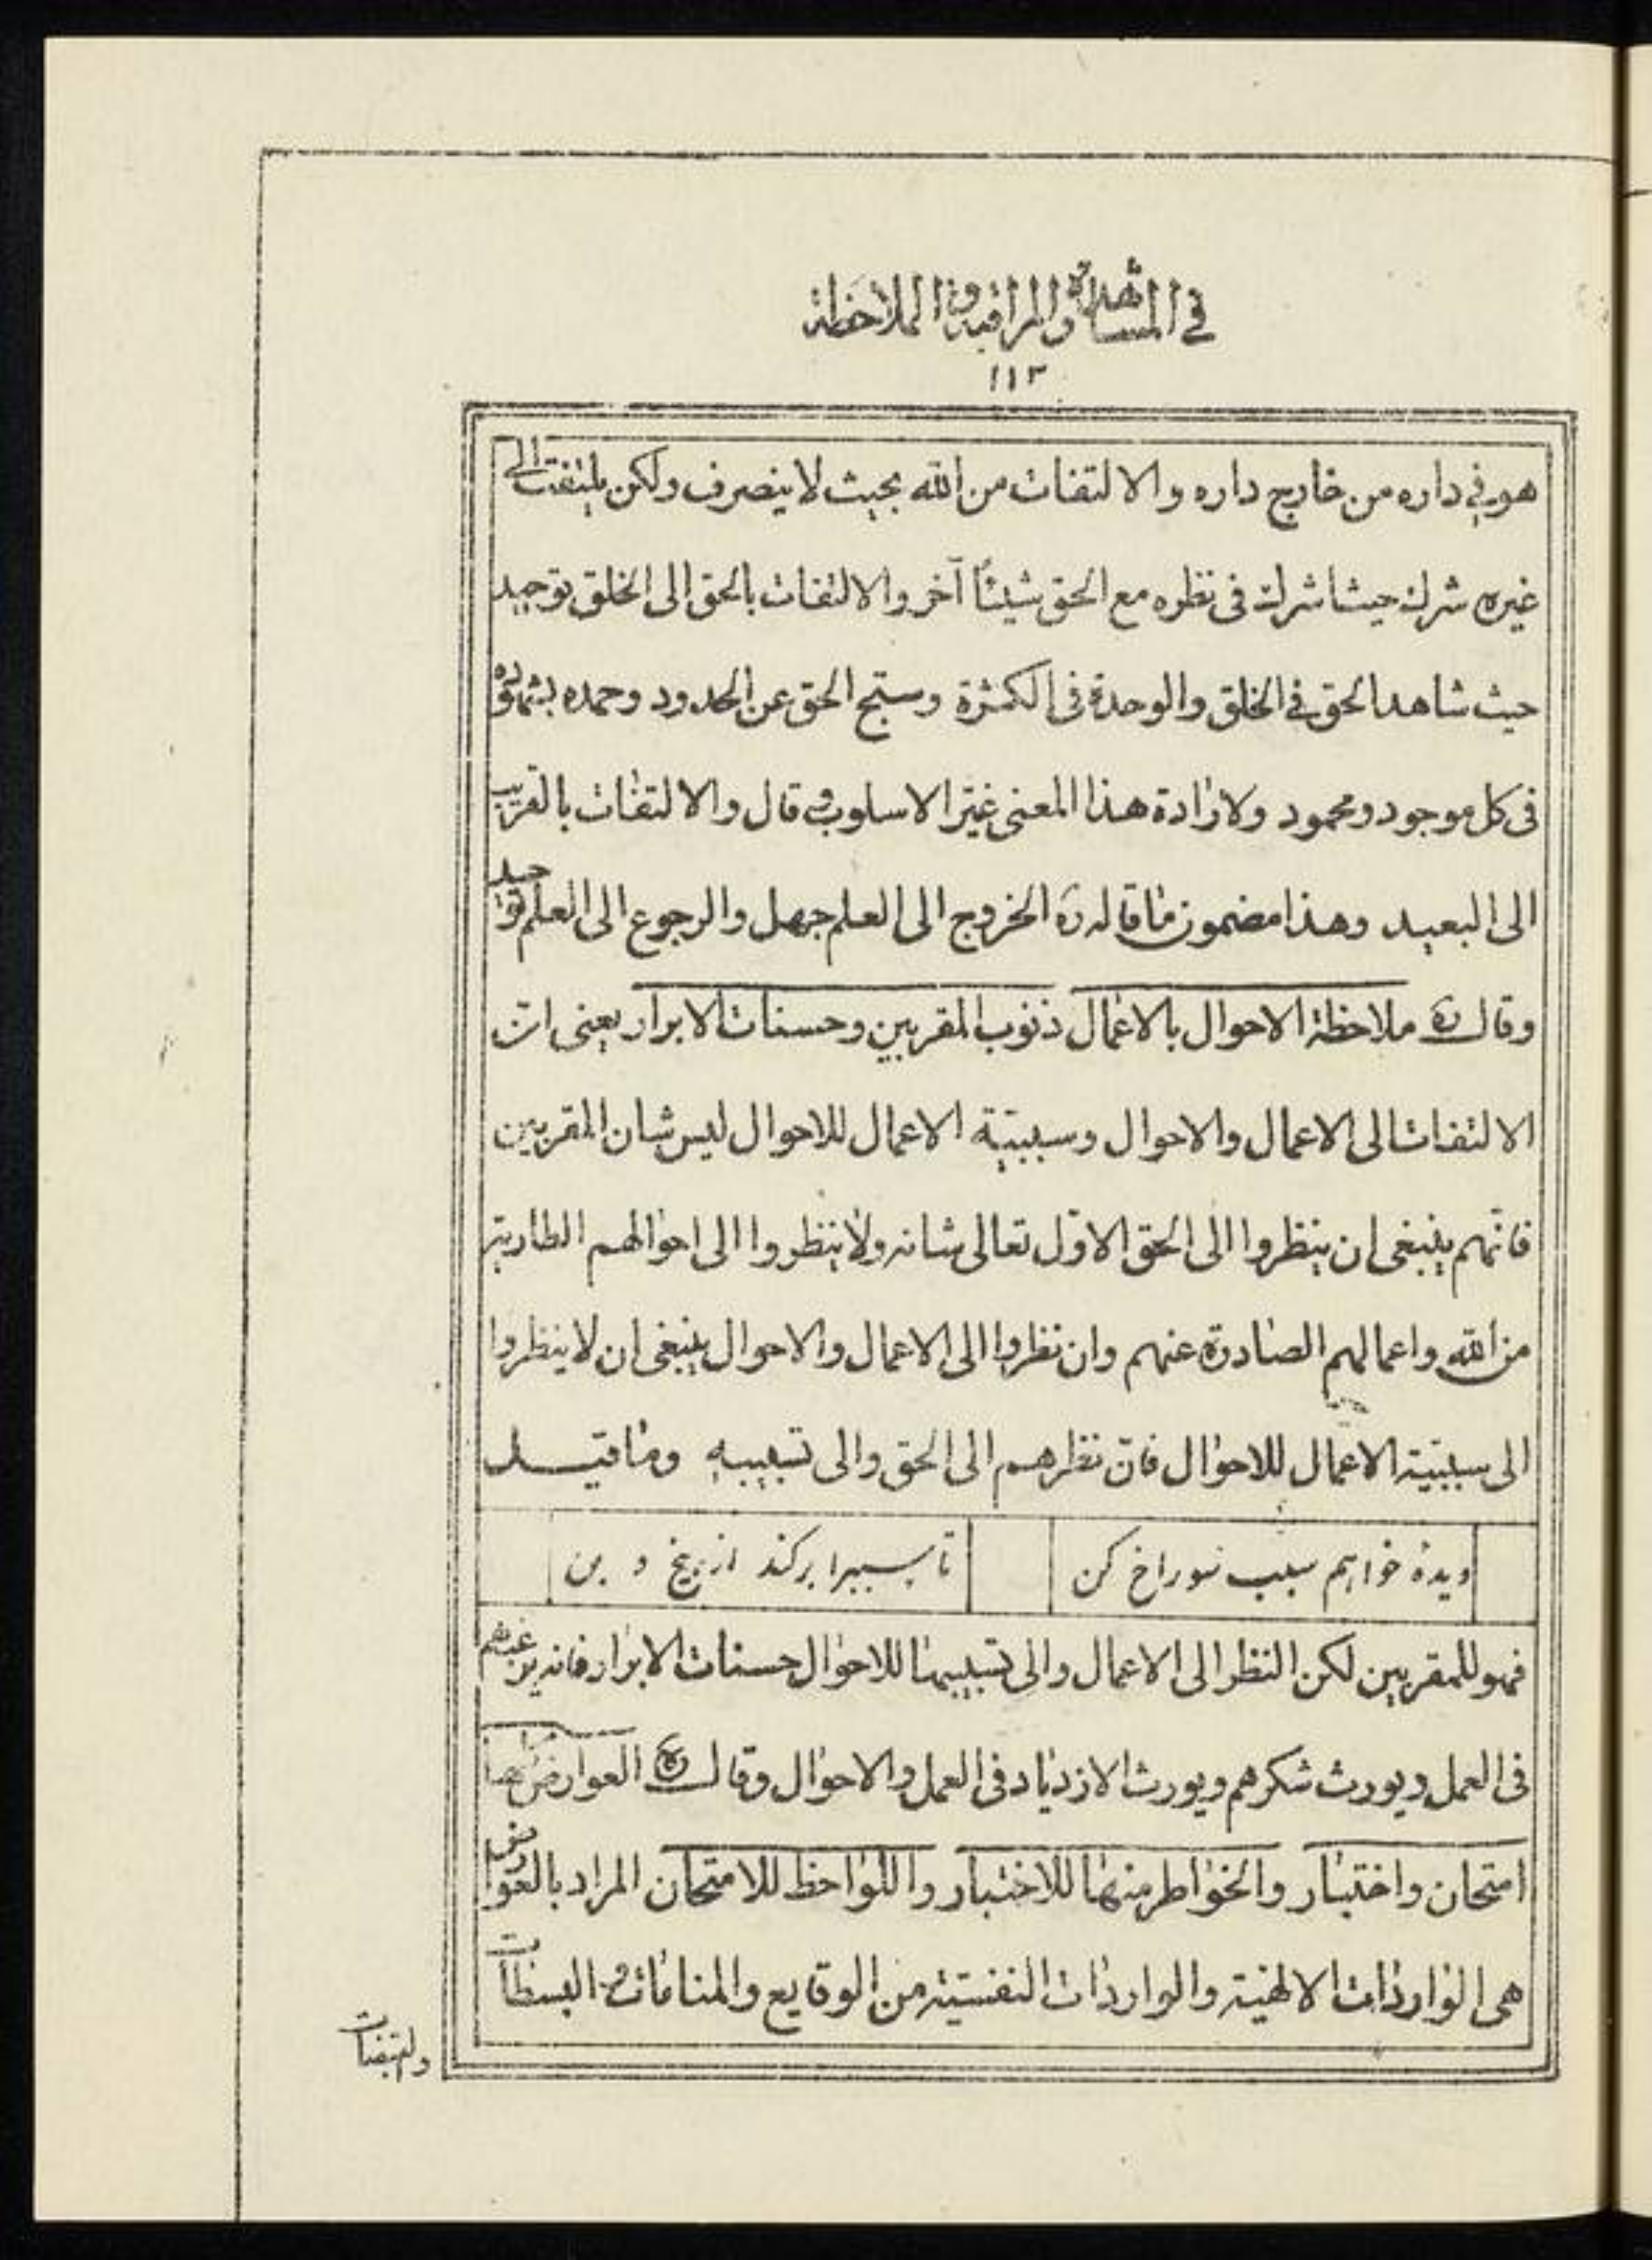 في المشاهدة والمراقبة والملاحظة
١١٣
هو في داره من خارج داره والالتفات من الله بحيث لا ينصرف ولكن يلتفت الى
غيره شرك حيث اشرك فى نظره مع الحق شيئاً آخر والالتفات بالحق الى الخلق توحيد
حيث شاهد الحق في الخلق والوحدة فى الكثرة وسبّح الحق عن الحدود وحمده بشهوده
فى كل موجود ومحمود ولارادة هذا المعنى غيّر الاسلوب وقال والالتفات بالقريب
الى البعيد وهذا مضمون ما قاله ره الخروج الى العلم جهل والرجوع الى العلم توحيد
وقال ره ملاحظة الاحوال بالاعمال ذنوب المقربين وحسنات الابرار يعنى ان
الالتفات الى الاعمال والاحوال وسببيّة الاعمال للاحوال ليس شان المقربين
فانّهم ينبغى ان ينظروا الى الحق الاوّل تعالى شانه ولا ينظروا الى احوالهم الطارية
من الله واعمالهم الصادرة عنهم وان نظروا الى الاعمال والاحوال ينبغى ان لا ينظروا
الى سببيّة الاعمال للاحوال فانّ نظرهم الى الحق والى تسبيبه وما قيل
ديده خواهم سبب سوراخ كن
تا سبب را بركند از بيخ و بن
فهو للمقربين لكن النظر الى الاعمال والى تسبيبها للاحوال حسنات الابرار فانه يرغبهم
فى العمل ويورث شكرهم ويورث الازدياد فى العمل والاحوال وقال ره العوارض
امتحان واختبار والخواطر منها للاختبار واللواحظ للامتحان المراد بالعوارض
هى الواردات الالهيّة والواردات النفسيّة من الوقايع والمنامات و البسطات